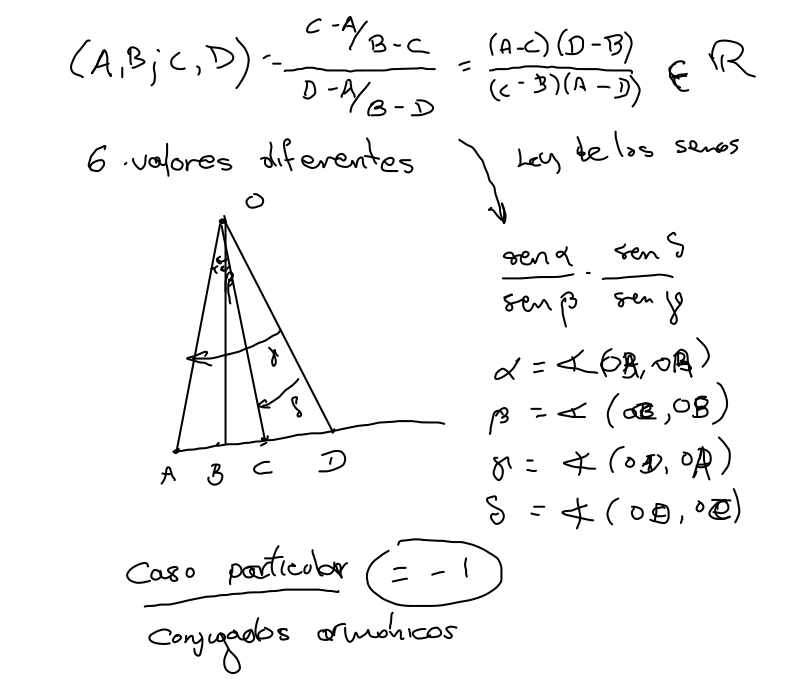 (A,B;C,D) = (C-A/B-C)/(D-A/B-D) = (A-C)(D-B)/(C-B)(A-D) ∈ ℝ
6 valores diferentes
Ley de los senos
O
sen α / sen β · sen δ / sen γ
α
β
γ
δ
α = ∢(
β = ∢ ( , OB)
γ = ∢ (OD, OA)
δ = ∢ (
A B C D
Caso particular = -1
Conjugados armónicos